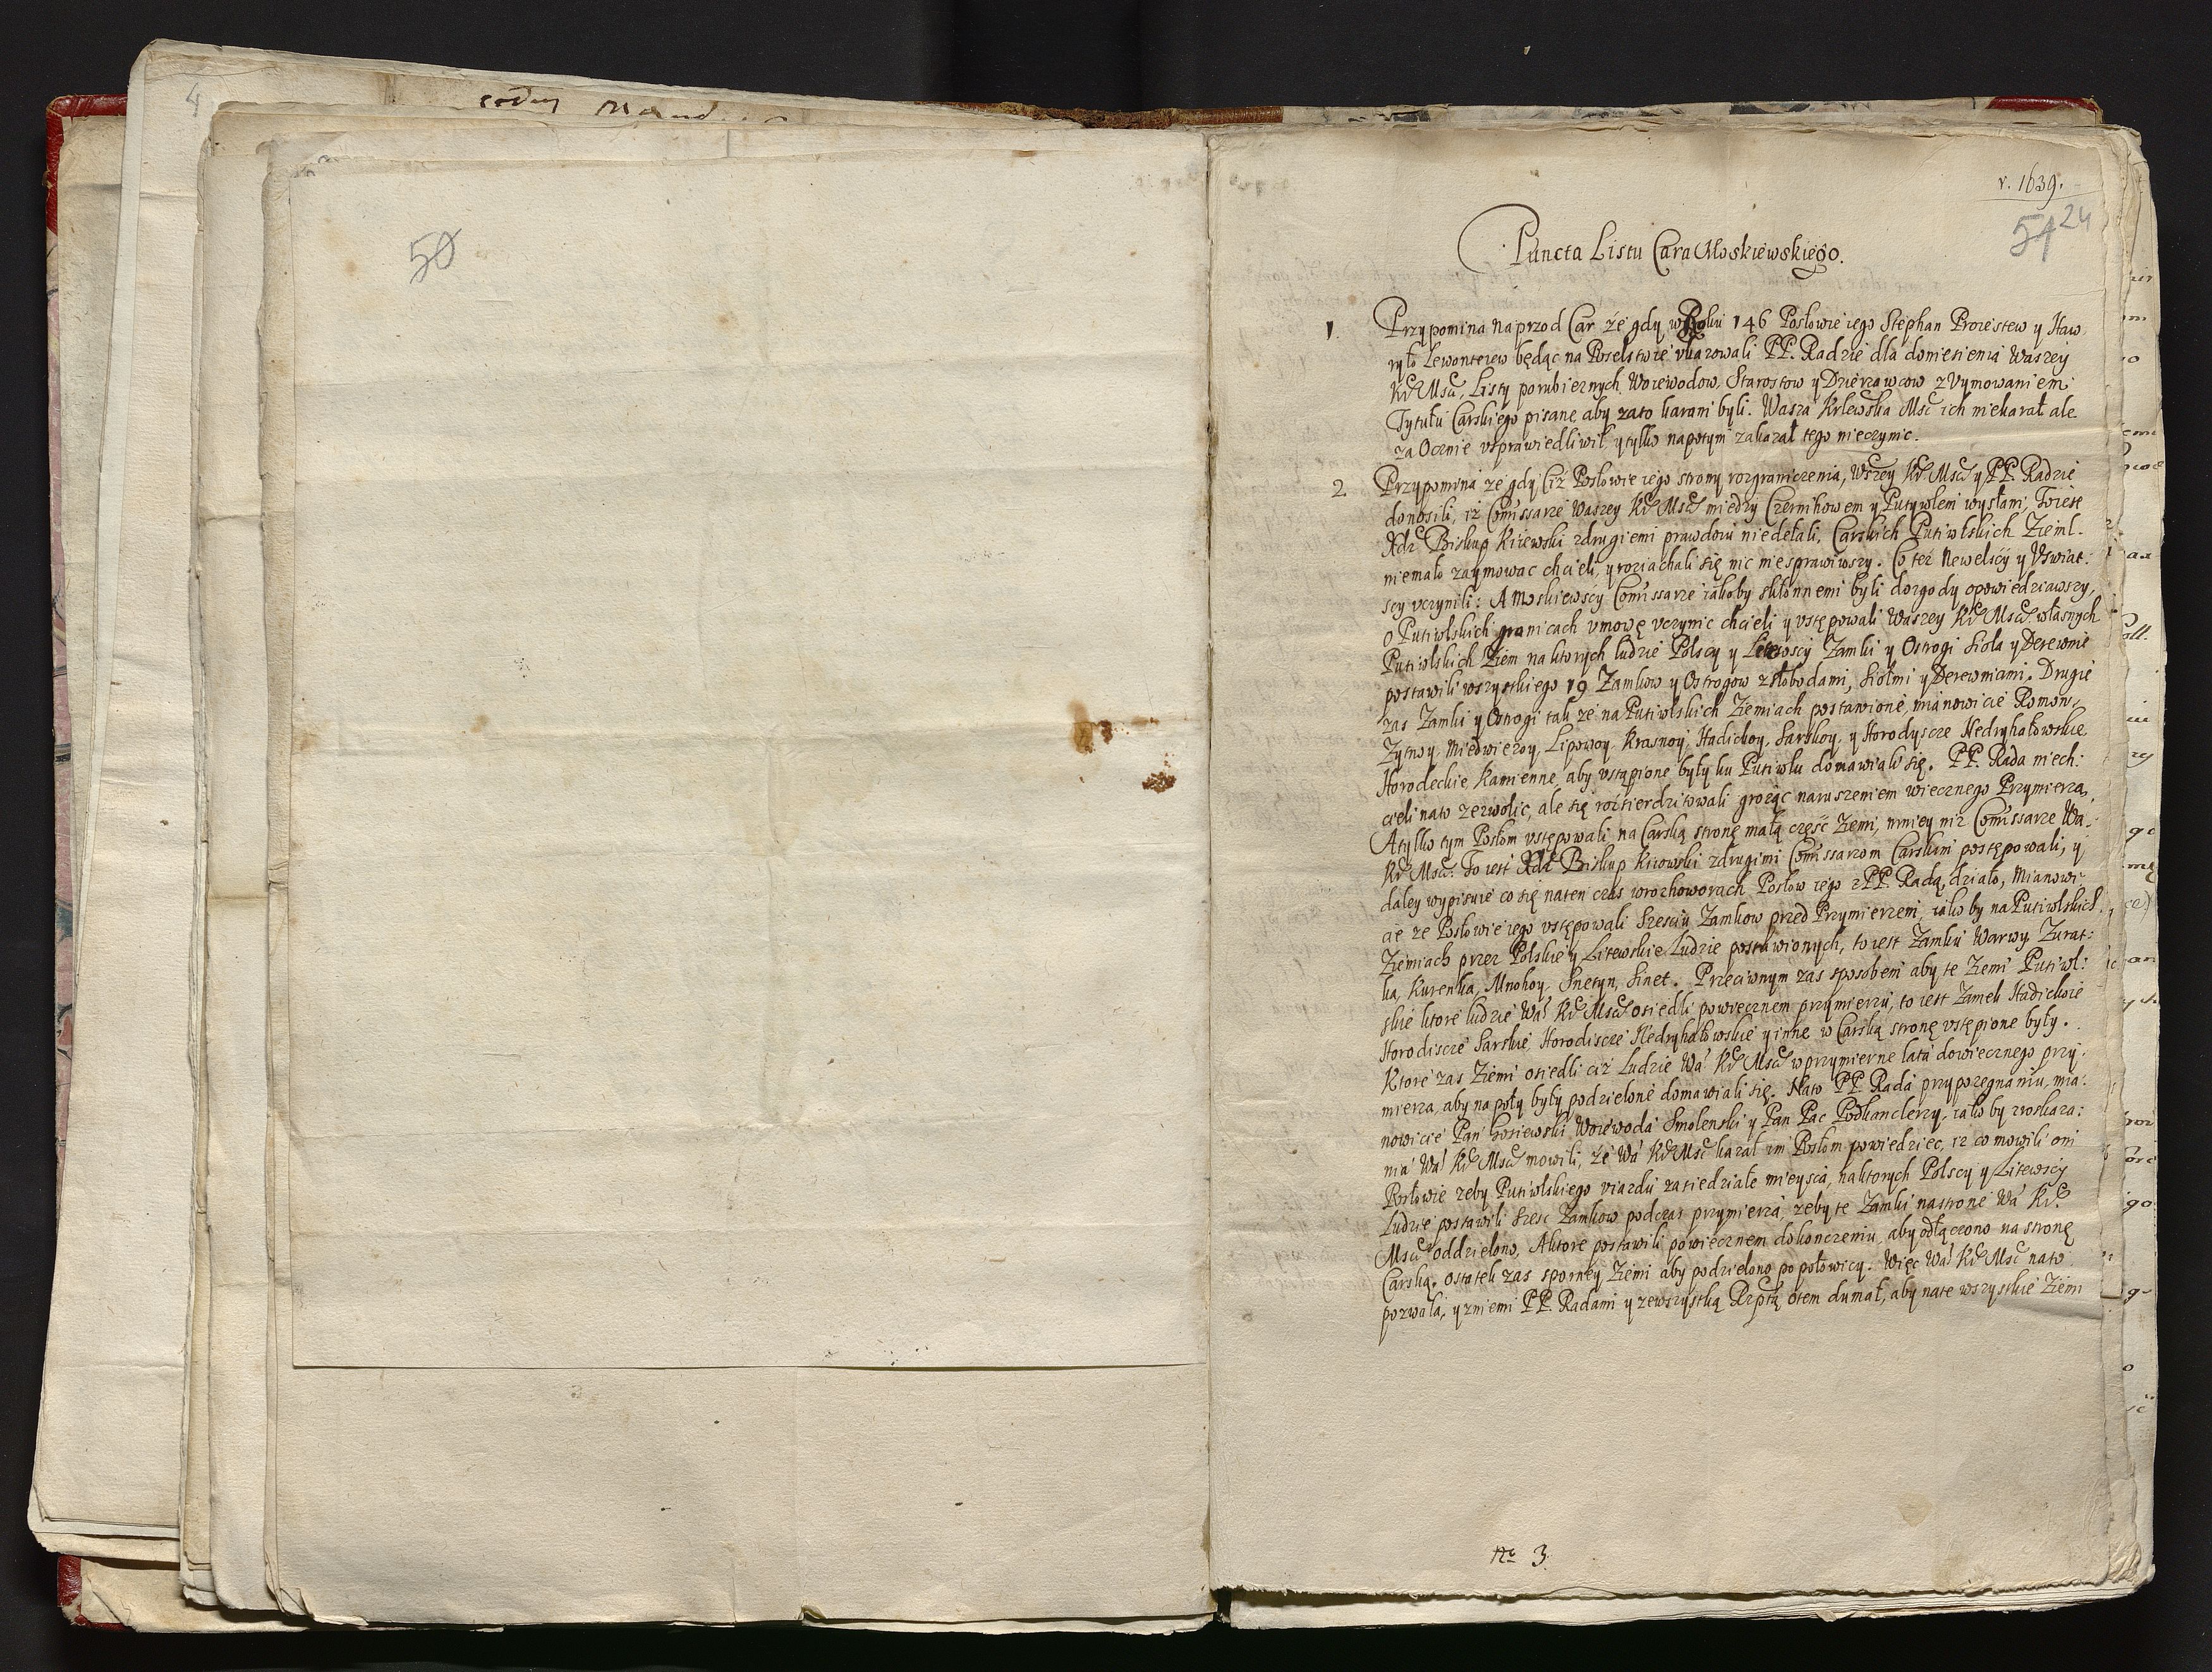 4
50
r. 1639.
51 24
Puncta Listu Cara Moskiewskiego.
1. Przypomina naprzod Car że gdy w Roku 146 Posłowie iego Stephan Proiestew y Haw
ryło Lewontiew będąc na Poselstwie ukazowali PP. Radzie dla doniesienia Waszey
Kr Mści, Listy porubieznych Woiewodow, Starostow y Dzierzawcow z Vymowaniem
Tytułu Carskiego pisane aby zato karani byli. Wasza Krlewska Msc ich niekarał ale
za Ocznie vsprawiedliwił, y tylko napotym zakazał tego nieczynic.
2. Przypomina ze gdy Ciż Posłowie iego strony rozgraniczenia, Wszey Kr Mści y PP. Radzie
donosili, iż Comissarze Waszey Kr Mści między Czernihowem y Putywlem wysłani, To iest
Xdz Biskup Kiiewski zdrugiemi prawdziw niedełali, Carskich Putiwlskich Zieml-
niemało zaymowac chcieli, y roziachali się nic niesprawiwszy. Co też Newelscy y Vswiat:
scy vczynili: A Moskiewscy Comissarze iakoby skłonnemi byli dozgody opowiedziawszy,
o Putiwlskich granicach vmowę vczynic chcieli y vstępowali Waszey Kr Mści własnych
Putiwlskich Ziem naktorych ludzie Polscy y Litewscy Zamki y Ostrogi Sioła y Derewnie
postawili wszystkiego 19 Zamkow y Ostrogow zsłobodami, Siołmi y Derewniami. Drugie
zas Zamki y Ostrogi tak ze na Putiwlskich Ziemiach postawione, mianowicie Romon,
Zytnoy, Miedwiezoy, Lipowoy, Krasnoy, Hadickoy, Sarskoy, y Horodyscze Nedryhałowskie
Horodeckie Kamienne, aby vstąpione były ku Putiwlu domawiali się. PP. Rada niech:
cieli nato zezwolic, ale się rozsierdzitowali grożąc naruszeniem wiecznego Przymierza,
A tylko tym Posłom vstępowali na Carską stronę małą część Ziemi, mniey niz Comissarze Wa:
Kr Mści: To iest Xdz Biskup Kiiowski zdrugimi Comissarzom Carskim postępowali, y
daley wypisuie co się naten czas wrozhoworach Posłow iego z PP. Radą, działo, Mianowi-
cie ze Posłowie iego vstępowali Szesciu Zamkow przed Przymierzem, iako by na Putiwlskich
Ziemiach przez Polskie y Litewskie Ludzie postawionych, to iest Zamku Warwy, Zuraw:
ka, Kurenka, Mnohoy, Snetyn, Sinet. Przeciwnym zas sposobem aby te Ziemi Putiwl:
skie ktore ludzie Wa Kr Mści osiedli powiecznem przymierzu, to iest Zamek Hadickoie
Horodiscze Sarskie, Horodiscze Nedryhałowskie y inne w Carską stronę vstępione były.
Ktore zas Ziemi osiedli ciż Ludzie Wa Kr Mści wprzymierne lata dowiecznego przy-
mierza, aby napoły były podzielone domawiali się. Nato PP Rada przypozegnaniu, mia:
nowicie Pan Gosiewski Woiewoda Smolenski y Pan Pac Podkanclerzy, iako by zroskaza:
nia Wa Kr Mści mowili, że Wa Kr Msc kazał im Posłom powiedziec, iz co mowili oni
Posłowie zeby Putiwlskiego viazdu zasiedziałe mieysca, naktorych Polscy y Litewscy
Ludzie postawili Szesc Zamkow podczas przymierza, zeby te Zamki nastronę Wa Kr
Mści oddzielono, Aktore postawili powiecznem dokonczeniu, aby odłączono na stronę
Carską. ostatek zas sporney Ziemi aby podzielono po połowicy. Więc Wa Kr Msc nato
pozwala, y zniemi PP. Radami y zewszystką Rzptą otem dumał, aby nate wszystkie Ziemi
No 3